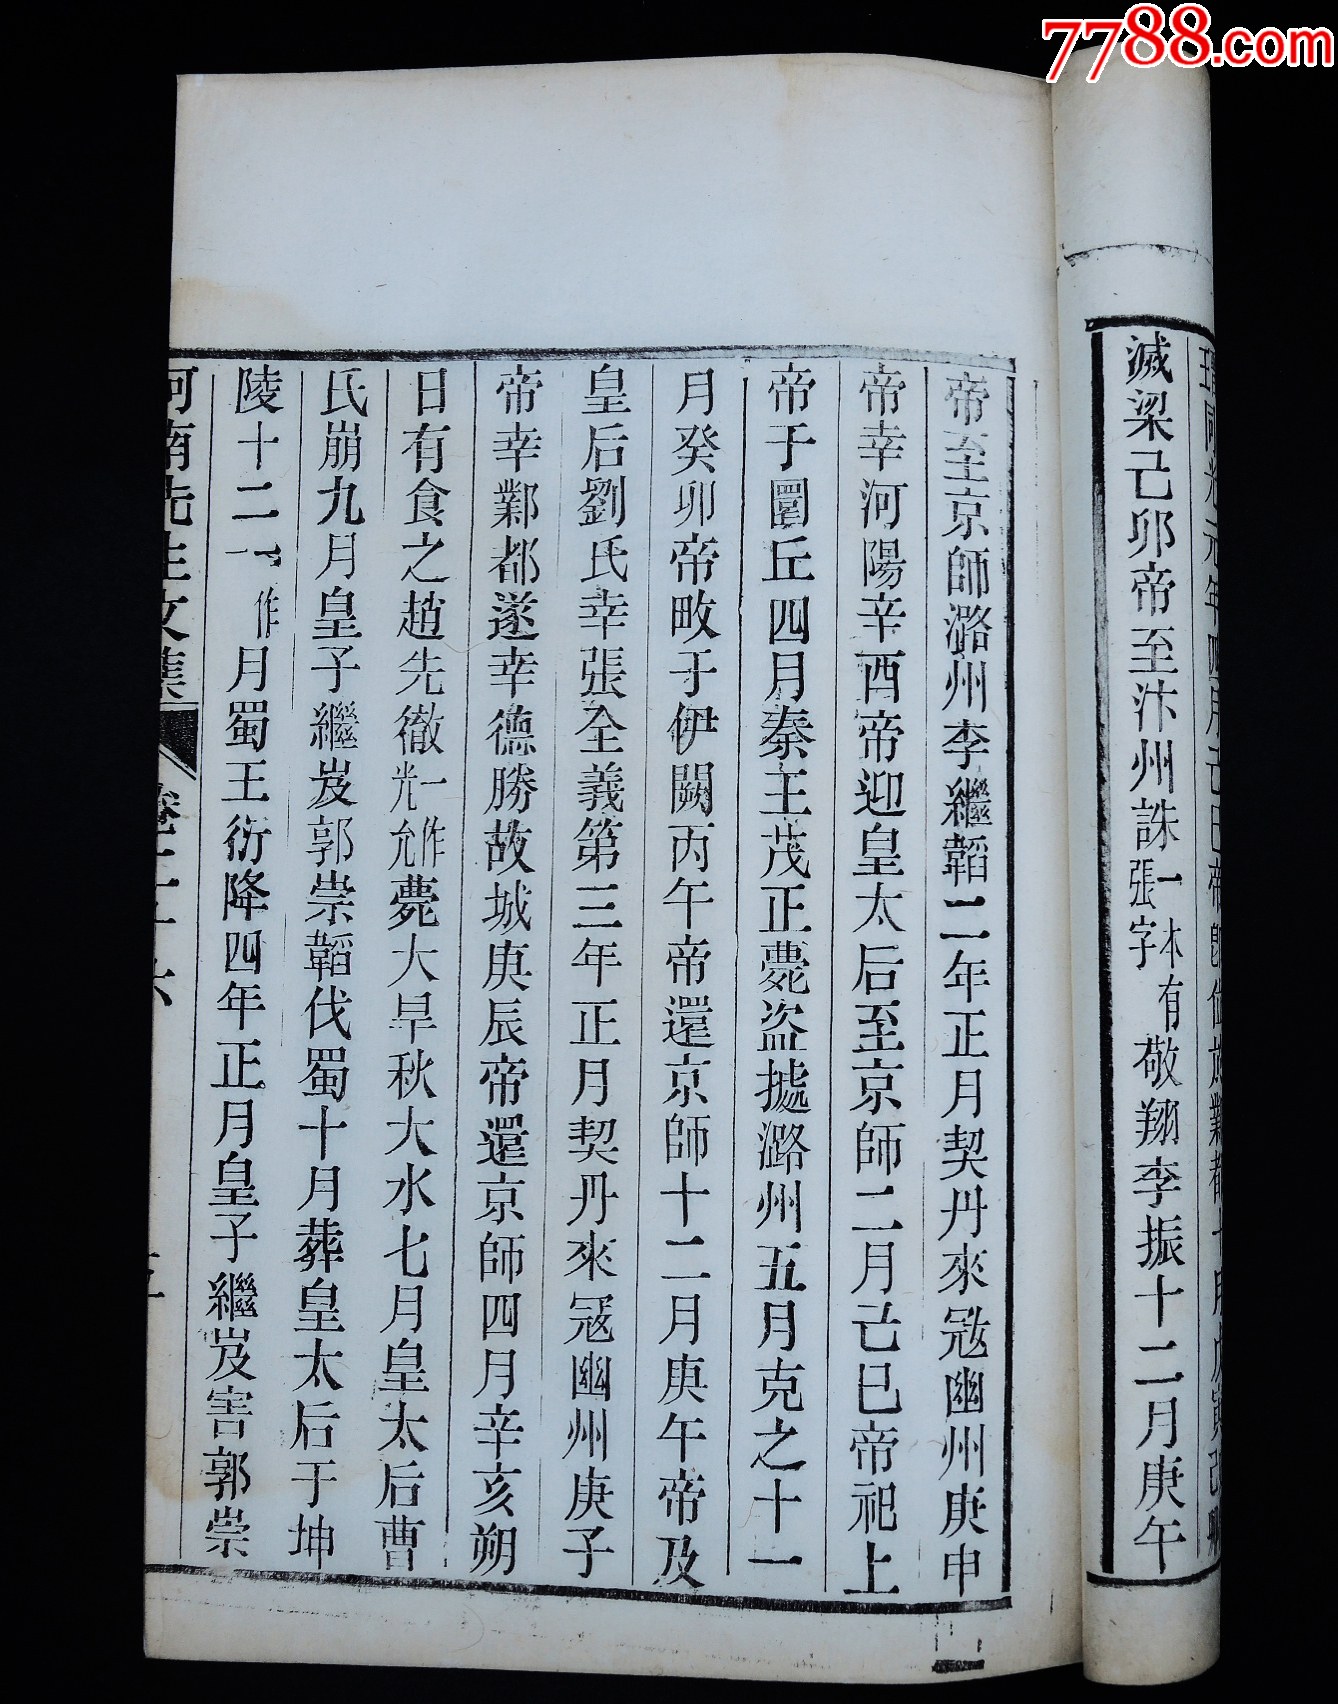 7788.com
滅梁己卯帝至汴州誅一本有張字敬翔李振十二月庚午
帝至京師潞州李繼韜二年正月契丹來冦幽州庚申
帝幸河陽辛酉帝迎皇太后至京師二月己巳帝祀上
帝于圜丘四月秦王茂正薨盗據潞州五月克之十一
月癸卯帝畋于伊闕丙午帝還京師十二月庚午帝及
皇后劉氏幸張全義第三年正月契丹來冦幽州庚子
帝幸鄴都遂幸德勝故城庚辰帝還京師四月辛亥朔
日有食之趙先徹一作光允薨大旱秋大水七月皇太后曹
氏崩九月皇子繼岌郭崇韜伐蜀十月葬皇太后于坤
陵十二一作月蜀王衍降四年正月皇子繼岌害郭崇
河南先生文集 卷二十六